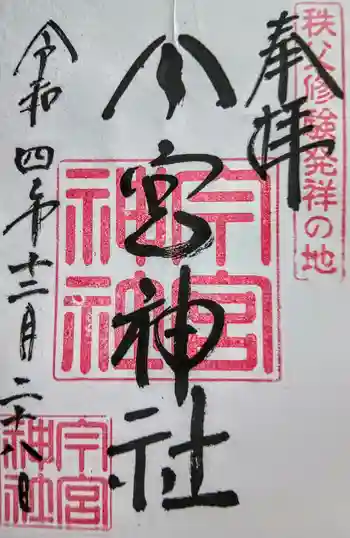 秩父修験発祥の地
奉拝
今宮神社
令和四年十二月二十八日
今宮
神社
今宮
神社